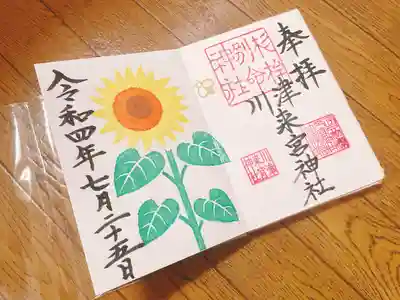 奉拝
川津来宮神社
杉桙別命神社
令和四年七月二十五日